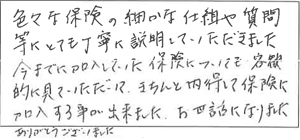 色々な保険の細かな仕組や質問
等にとても丁寧に説明していただきました
今までに加入していた保険についても客観
的に見ていただいて、きちんと内得して保険に
加入する事が出来ました。お世話になりました
ありがとうございました